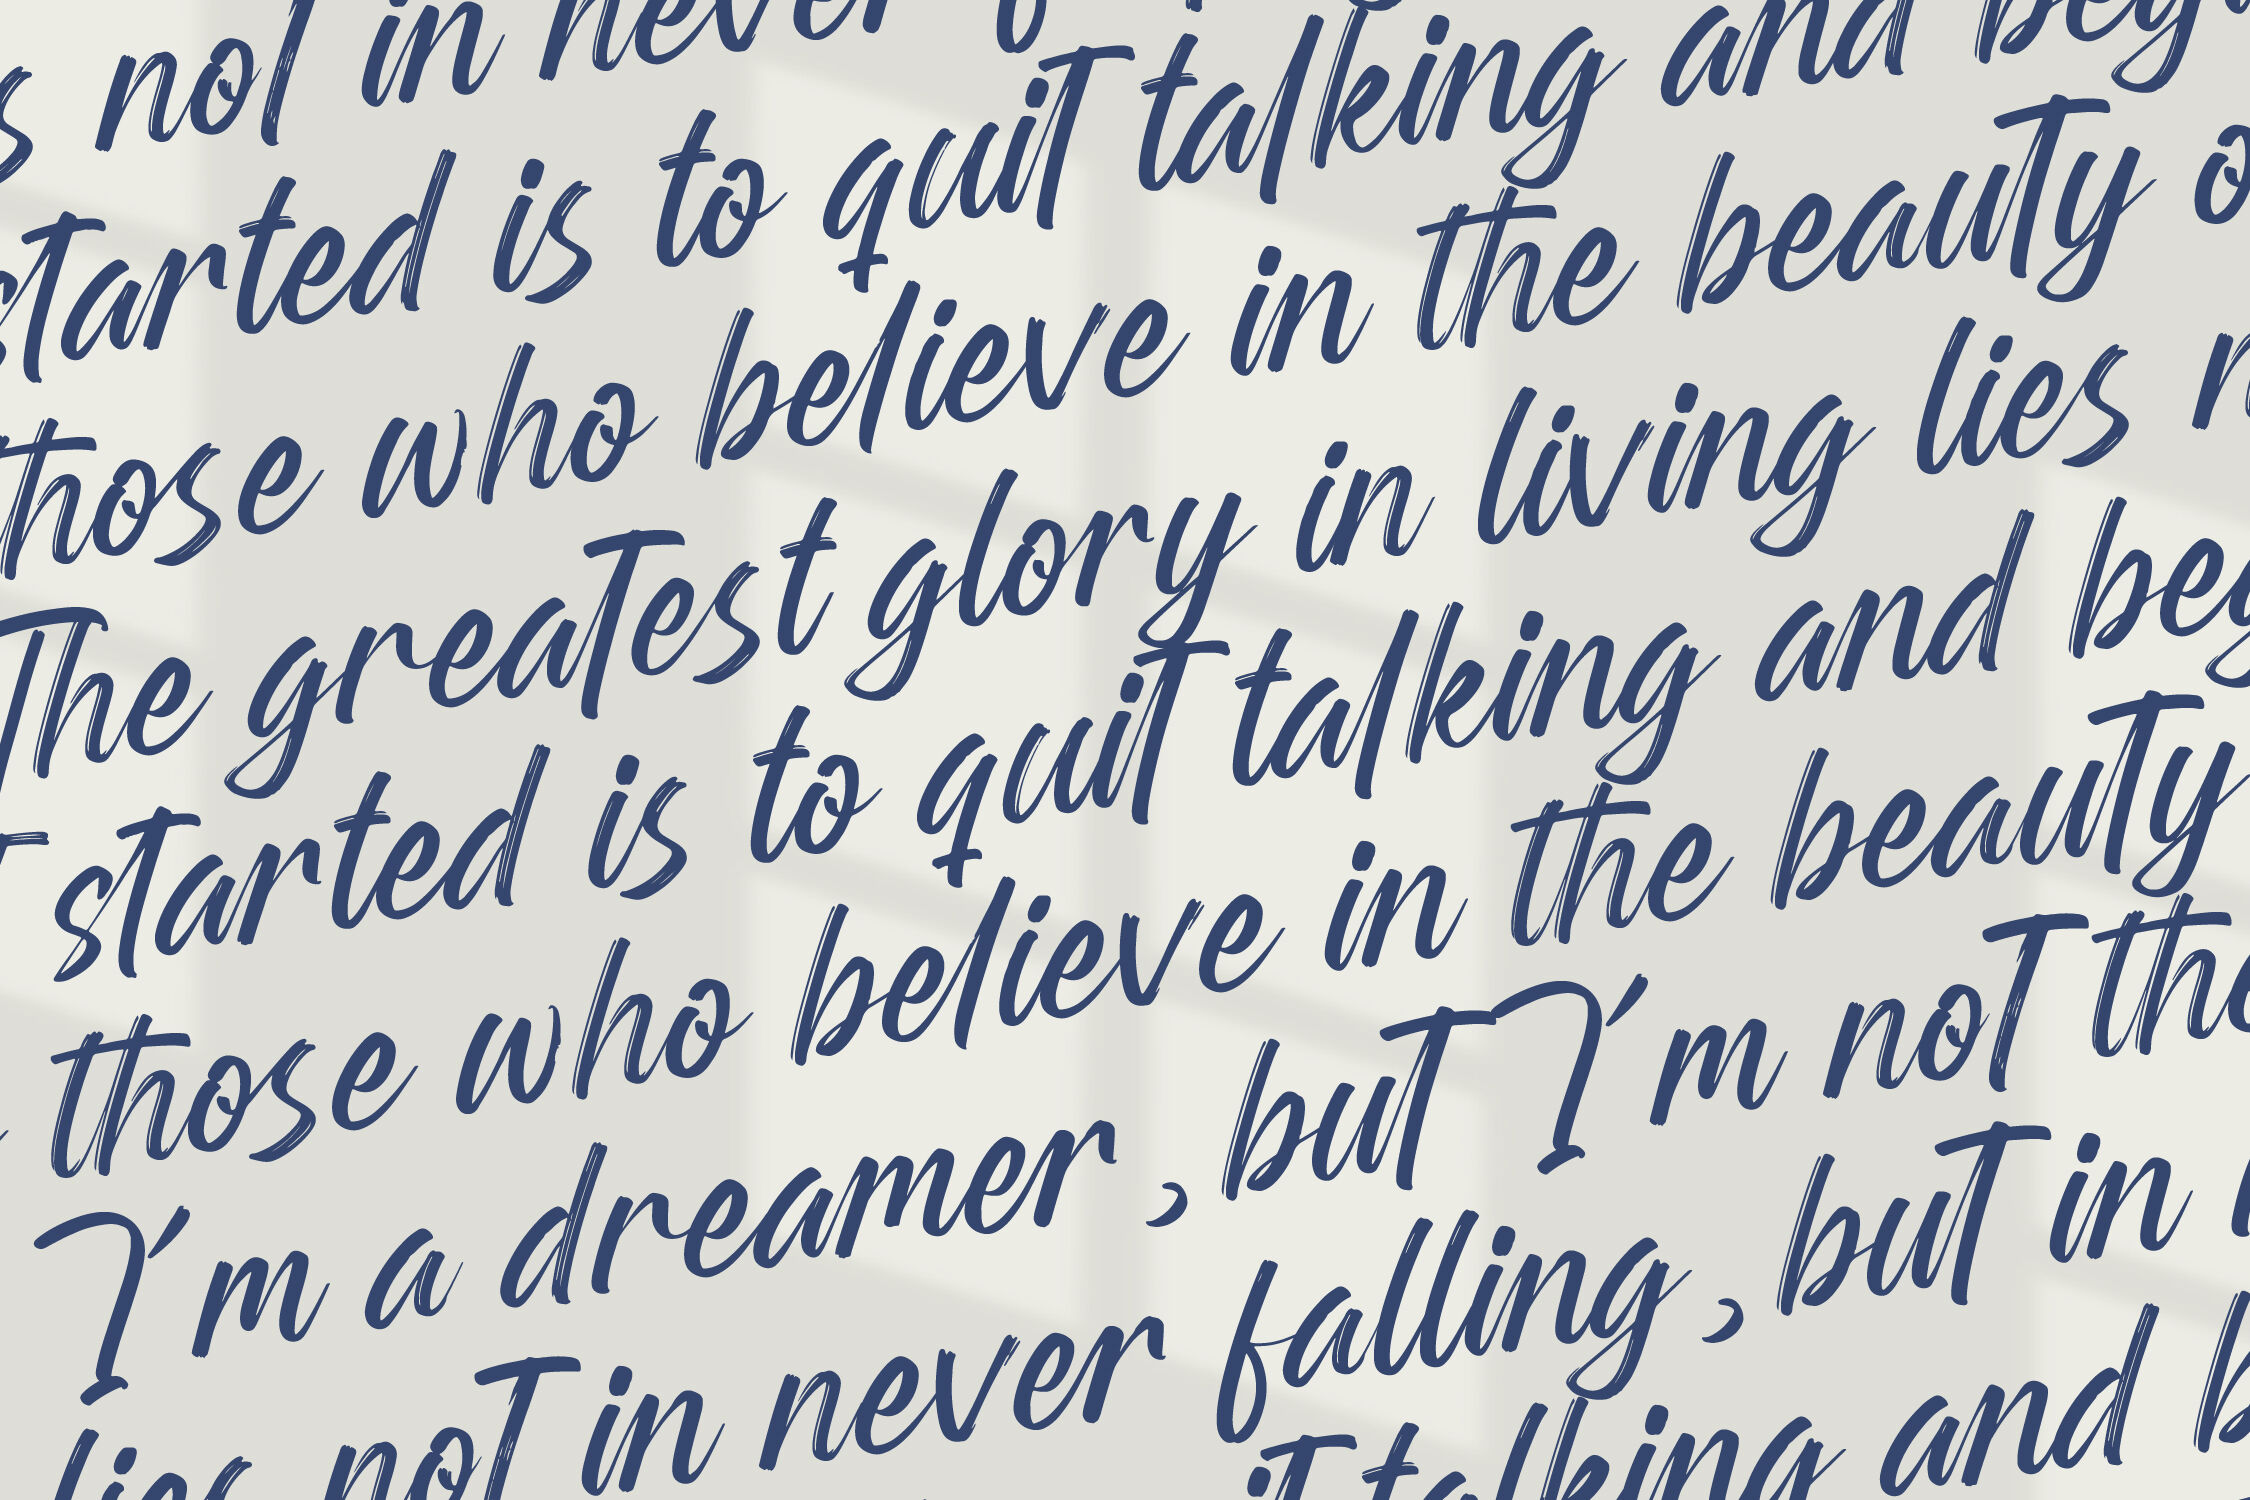 s not in never
started is to quit talking and beg
those who believe in the beauty o
The greatest glory in living lies n
t started is to quit talking and beg
those who believe in the beauty
I'm a dreamer, but I'm not the
lies not in never falling, but in
it talking and b